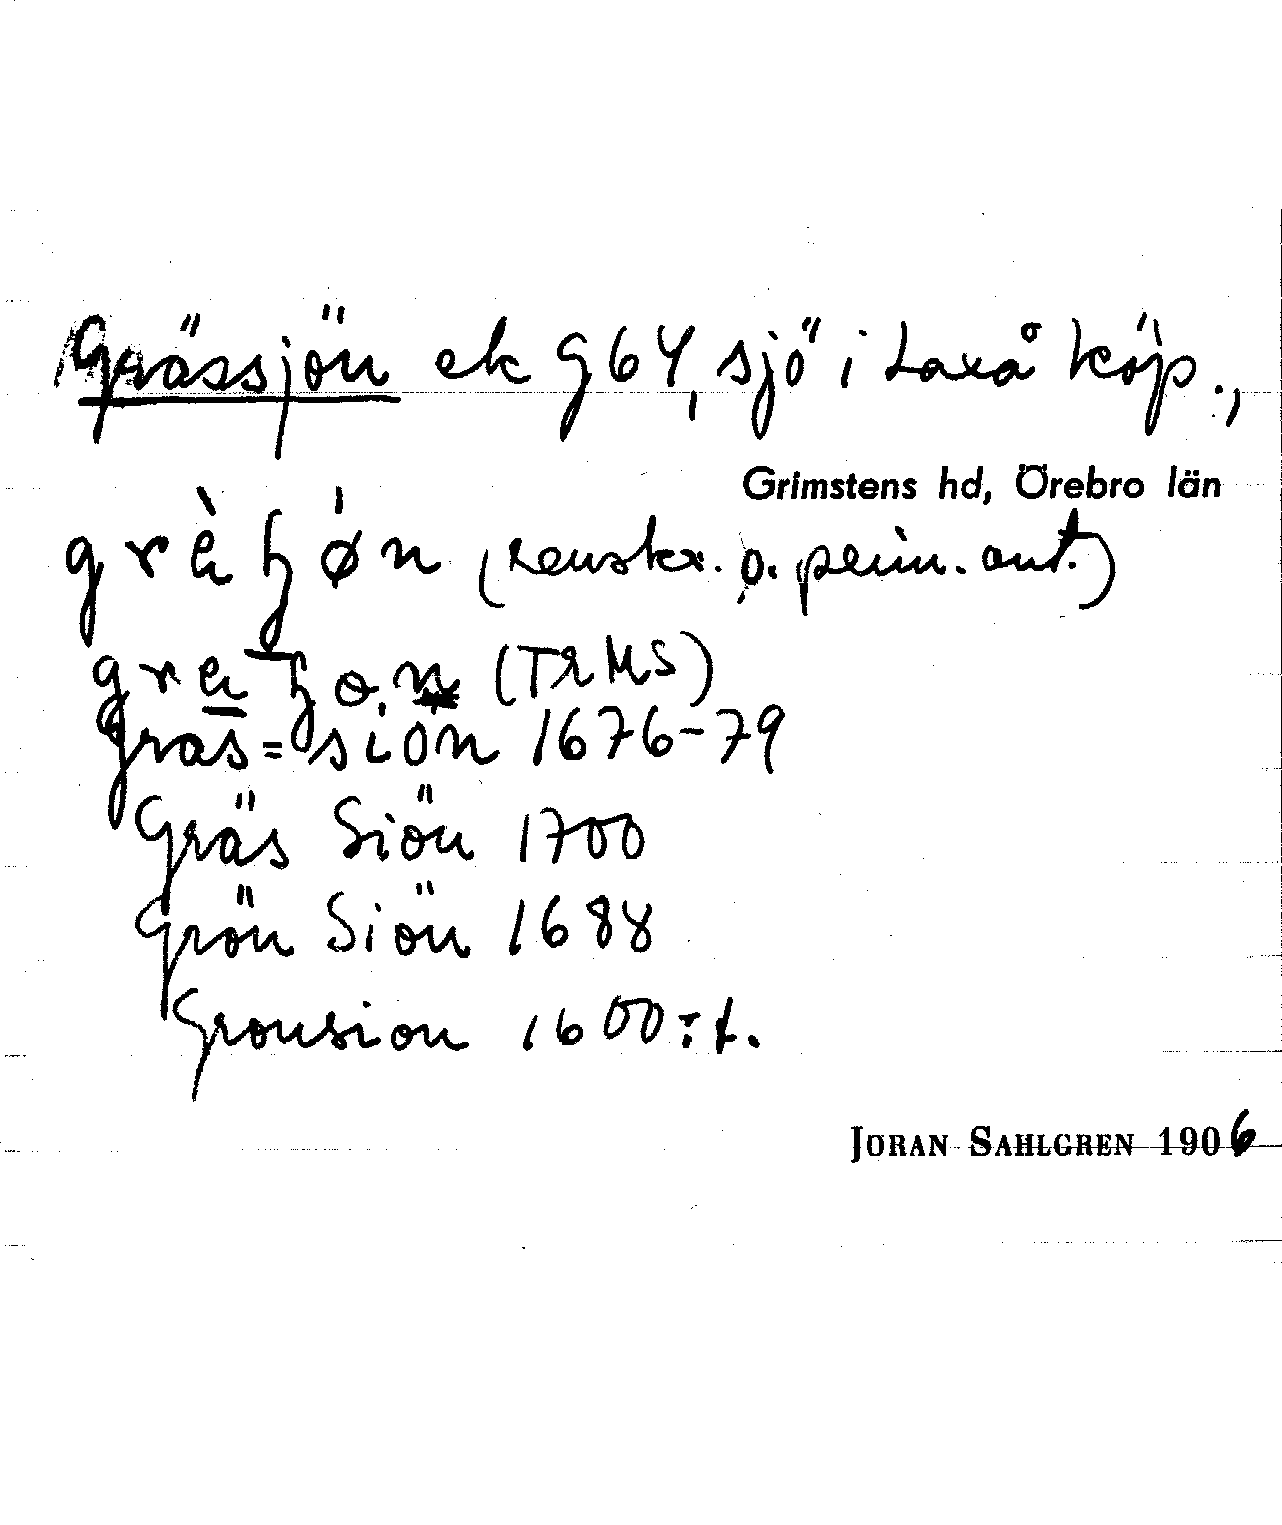 Grässjön ek 964, sjö i Laxå köp.,
Grimstens hd, Örebro län
(renskr. o. prim. ant.)
(TRMS)
Gräs=siön 1676-79
Gräs Siön 1700
Grön Siön 1688
Gronsion 1600:t.
JORAN SAHLGREN 1906